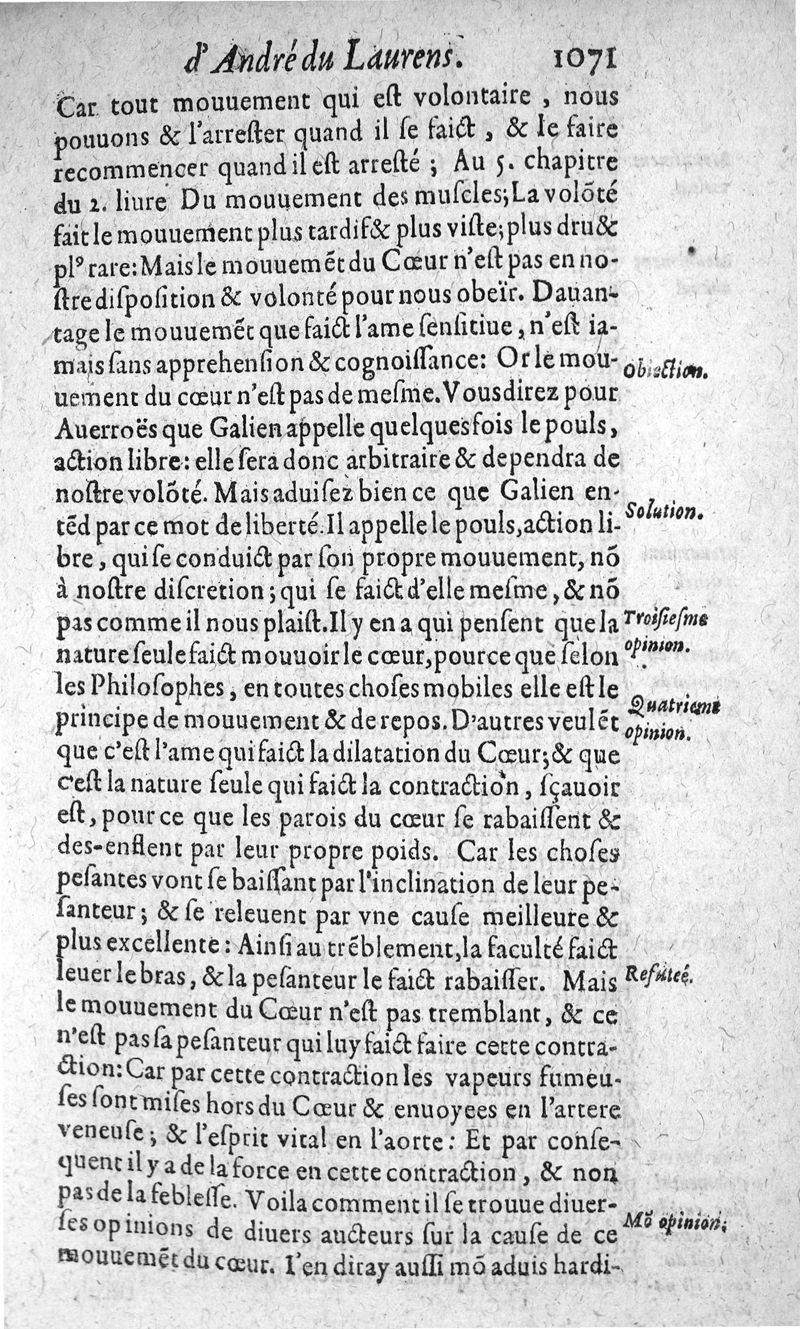 d'André du Laurens. 1071
Car tout mouuement qui eſt volontaire , nous
pouuons & l'arreſter quand il ſe faict , & le faire
recommencer quand il eſt arreſté ; Au 5. chapitre
du 2. liure Du mouuement des muſcles; La volõté
fait le mouuement plus tardif & plus viſte; plus dru &
plꝰ rare: Mais le mouuemẽt du Cœur n'eſt pas en no-
ſtre diſpoſition & volonté pour nous obeïr. Dauan-
tage le mouuemẽt que faict l'ame ſenſitiue, n'eſt ia-
mais ſans apprehenſion & cognoiſſance: Or le mou-
Obiection.
uement du cœur n'eſt pas de meſme. Vous direz pour
Auerroës que Galien appelle quelquesfois le pouls,
action libre: elle ſera donc arbitraire & dependra de
noſtre volõté. Mais aduiſez bien ce que Galien en-
Solution.
tẽd par ce mot de liberté. Il appelle le pouls, action li-
bre, qui ſe conduict par ſon propre mouuement, nõ
à noſtre diſcretion; qui ſe faict d'elle meſme, & nõ
pas comme il nous plaiſt. Il y en a qui penſent que la
Troiſieſme
opinion.
nature ſeule faict mouuoir le cœur, pource que ſelon
les Philoſophes, en toutes choſes mobiles elle eſt le
Quatrieme
opinion.
principe de mouuement & de repos. D'autres veulẽt
que c'eſt l'ame qui faict la dilatation du Cœur; & que
c'eſt la nature ſeule qui faict la contraction, ſçauoir
eſt, pour ce que les parois du cœur ſe rabaiſſent &
des-enflent par leur propre poids. Car les choſes
peſantes vont ſe baiſſant par l'inclination de leur pe-
ſanteur; & ſe releuent par vne cauſe meilleure &
plus excellente: Ainſi au trẽblement, la faculté faict
leuer le bras, & la peſanteur le faict rabaiſſer. Mais
Refuteé.
le mouuement du Cœur n'eſt pas tremblant, & ce
n'eſt pas ſa peſanteur qui luy faict faire cette contra-
ction: Car par cette contraction les vapeurs fumeu-
ſes ſont miſes hors du Cœur & enuoyees en l'artere
veneuſe; & l'eſprit vital en l'aorte: Et par conſe-
quent il y a de la force en cette contraction, & non
pas de la febleſſe. Voila comment il ſe trouue diuer-
ſes opinions de diuers aucteurs ſur la cauſe de ce
Mõ opinion;
mouuemẽt du cœur. I'en diray auſſi mõ aduis hardi-